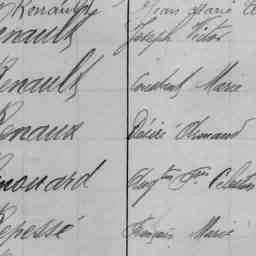 Renault Jean Marie
Renault Joseph Victor
Renault Constant Marie
Renaux Désiré Armand
Renouard Célestin
Repessé François Marie